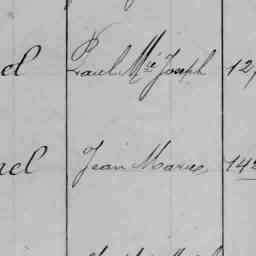 el Paul Mie Joseph 12,
el Jean Marie 14